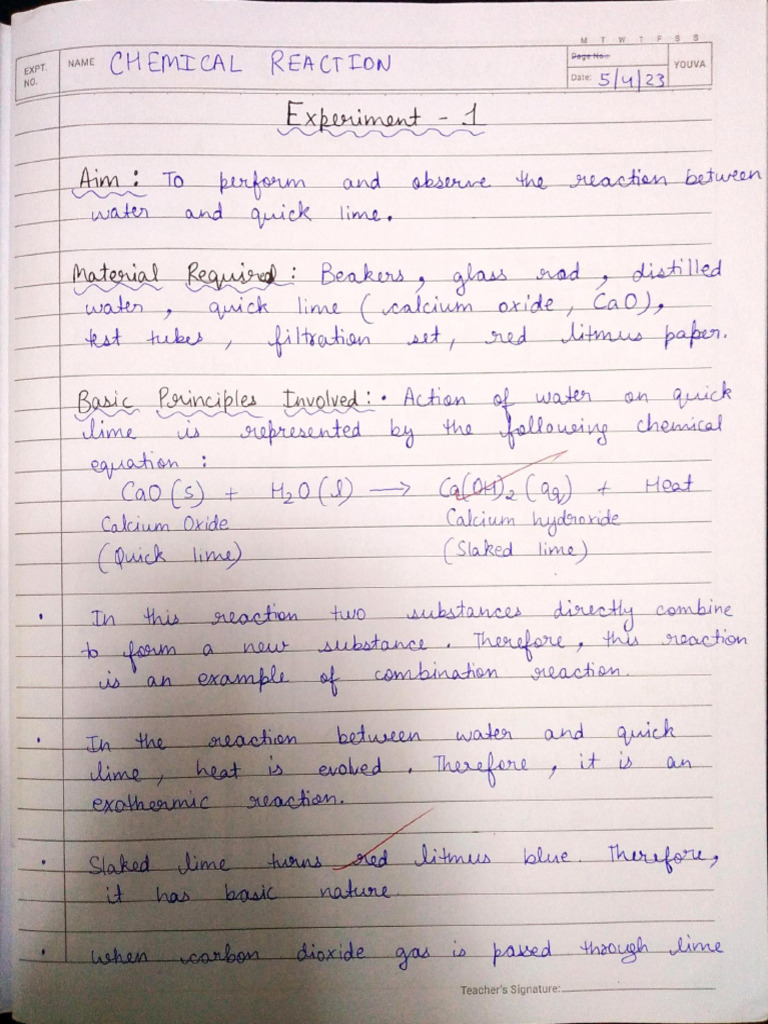 M T W T F S S
EXPT. NO. NAME CHEMICAL REACTION Page No.: YOUVA
Date: 5/4/23
Experiment - 1
Aim : To perform and observe the reaction between
water and quick lime.
Material Required : Beakers, glass rod, distilled
water, quick lime (calcium oxide, CaO),
test tubes, filtration set, red litmus paper.
Basic Principles Involved : • Action of water on quick
lime is represented by the following chemical
equation :
CaO(s) + H2O(l) → Ca(OH)2(aq) + Heat
Calcium Oxide Calcium hydroxide
(Quick lime) (Slaked lime)
• In this reaction two substances directly combine
to form a new substance. Therefore, this reaction
is an example of combination reaction.
• In the reaction between water and quick
lime, heat is evolved. Therefore, it is an
exothermic reaction.
• Slaked lime turns red litmus blue. Therefore,
it has basic nature.
• When carbon dioxide gas is passed through lime
Teacher's Signature: